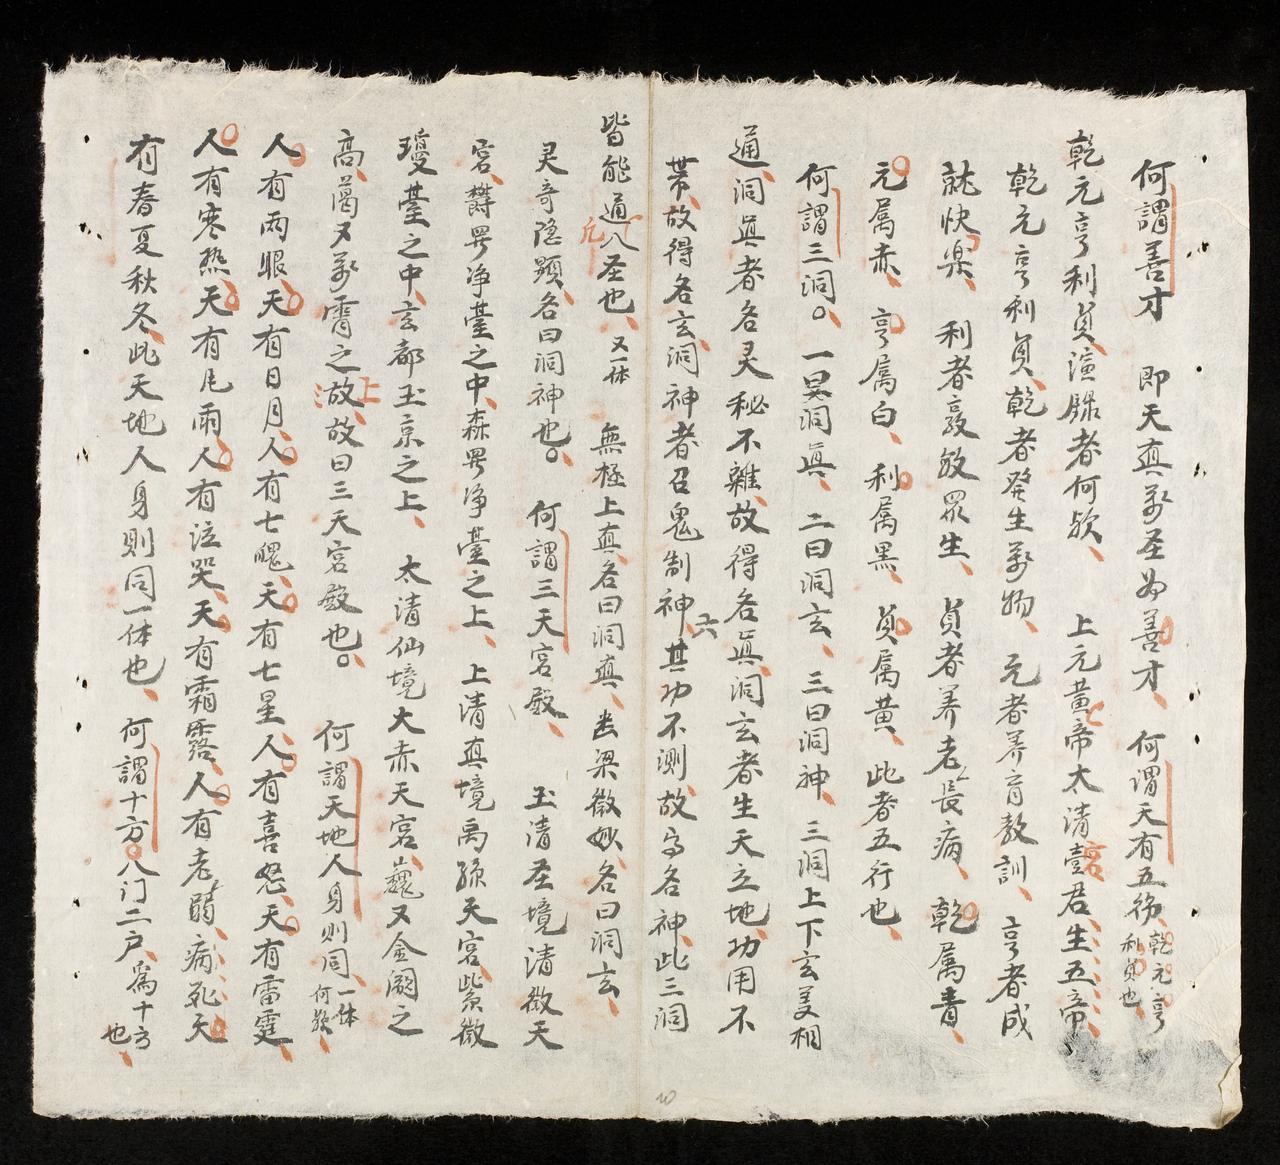 何謂善才　即天真萬圣為善才、何谓天有五　乾元亨利貞也
乾元亨利貞、演　者何欤、　上元黄帝太清　君生五帝、
乾元亨利貞、乾者發生萬物、元者养育教訓、亨者成
就快樂、　利者　敛眾生、貞者养老長病、乾属青、
元属赤、亨属白、利属黑、貞属黄、此者五行也、
何謂三洞。　一曰洞真、二曰洞玄、三曰洞神、三洞上下玄　相
通、洞真者各灵秘不雜、故得名真、洞玄者生天立地、功用不
带、故得名玄、洞神者召鬼制神、其功不测、故　名神、此三洞
六
皆能通八圣也、又一体　無極上真、名曰洞真、　梁微妙、名曰洞玄、
灵奇隐顯、名曰洞神也。　何謂三天宮殿、　玉清圣境清微天
宮、欝罗净臺之中、森罗净臺之上、上清真境禹餘天宮、紫微
瓊臺之中、玄都玉京之上、太清仙境大赤天宮、巍又金阙之
高、蔼又萬霄之上、故曰三天宮殿也。　何謂天地人身則同一体何欤、
人有两眼、天有日月、人有七魄、天有七星、人有喜怒、天有雷霆、
人有寒热、天有风雨、人有泣哭、天有霜露、人有老弱病死、天
有春夏秋冬、此天地人身則同一体也、何謂十方、八门二户、為十方也、